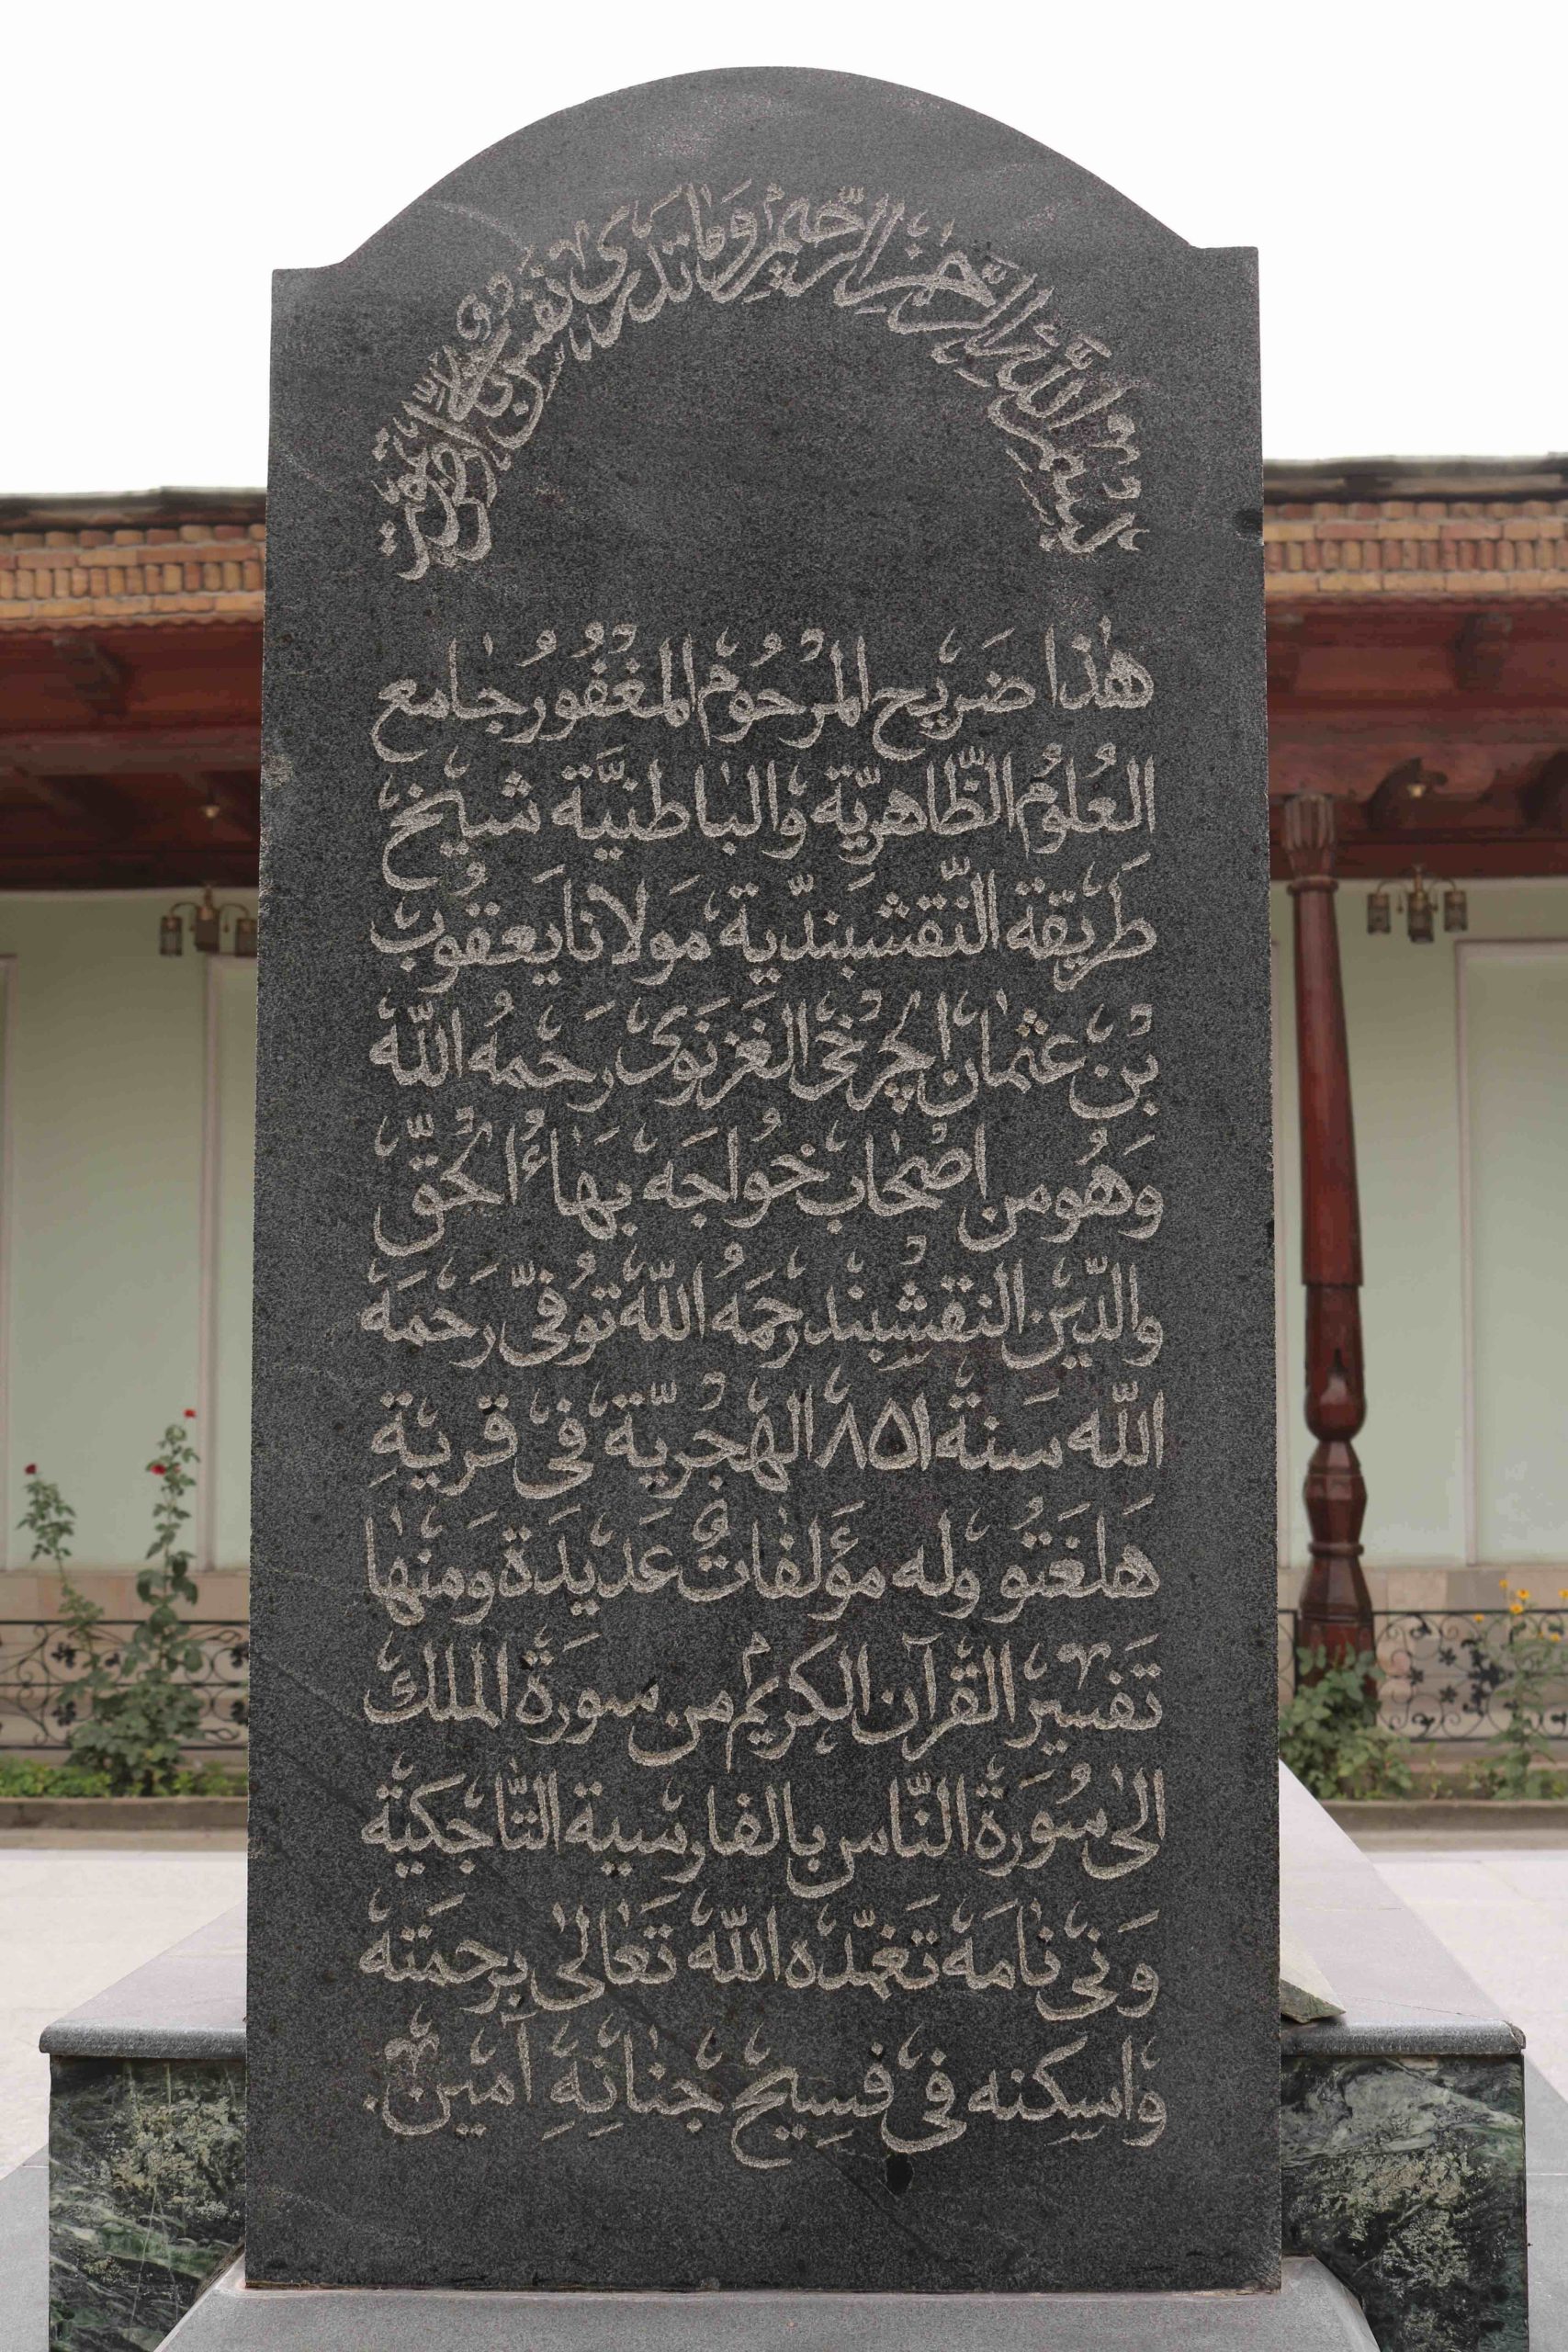 بسم الله الرحمن الرحيم وما تدرى نفس بأى ارض تموت
هٰذا ضَريح المرْحوُم المغفُور جامع
العُلومُ الظّاهريّة والباطنيَّة شيخ
طَريقة النّقشبنديّة مَولانا يَعقوب
بْن عثمان الچَرْخى الغَزنَوى رَحمهُ اللّه
وَهُو من اصْحٰاب خوُاجَه بهَاءُ الْحقّ
والدّين النقشْبند رحمَهُ اللّه توُفىّ رَحمَه
اللّه سَنة ٨٥١ الهجْريّة فى قريةِ
هَلغَتوُ وله مؤَلفاتٌ عَديدَة وَمنهٰا
تَفسير القرآن الكريم من سوَرة الملك
الىٰ سُوَرة النّاس بالفارسية التّاجكية
وَنى نامَه تَغمّده اللّه تَعٰالىٰ برحمَته
واسكنه فى فسِيح جنٰانِهِ آمين.